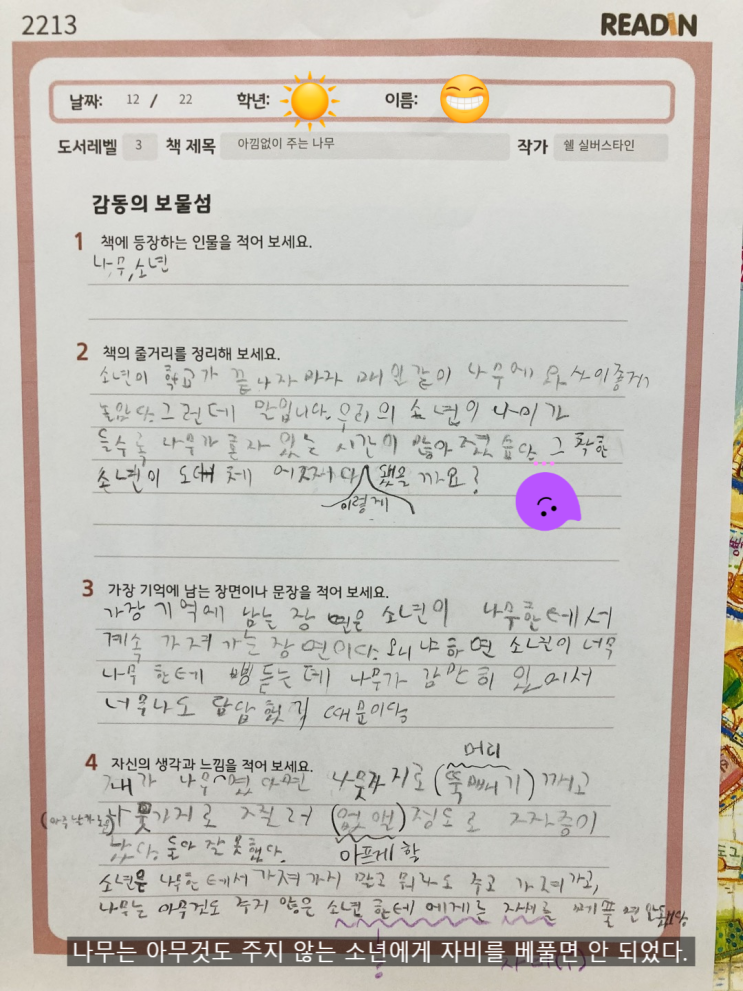 2213
READiN
날짜: 12 / 22 학년: 이름:
도서레벨 3 책 제목 아낌없이 주는 나무 작가 쉘 실버스타인
감동의 보물섬
1 책에 등장하는 인물을 적어 보세요.
나무, 소년
2 책의 줄거리를 정리해 보세요.
소년이 학교가 끝나자 마자 매일 같이 나무에 와 사이좋게
놀았다. 그런데 말입니다. 우리의 소년이 나이가
들수록 나무가 혼자 있는 시간이 많아졌습다. 그 착한
소년이 도대체 어쩌다 됐을까요?
이렇게
3 가장 기억에 남는 장면이나 문장을 적어 보세요.
가장 기억에 남는 장면은 소년이 나무한테서
계속 가져가는 장면이다. 왜냐하면 소년이 너무
나무한테 삥 뜯는데 나무가 감만히 있어서
너무나도 답답했기 때문이다.
4 자신의 생각과 느낌을 적어 보세요.
머리
내가 나무였다면 나뭇가지로 (뚝빼기) 깨고
(아주 날카로운) 나뭇가지로 찔러 (없앨) 정도로 짜증이
났다. 둘다 잘못했다. 아프게 할
소년은 나무한테서 가져가지 말고 뭐라도 주고 가져가고,
나무는 아무것도 주지 않은 소년한테 에게는 자세를
나무는 아무것도 주지 않는 소년에게 자비를 베풀면 안 되었다.